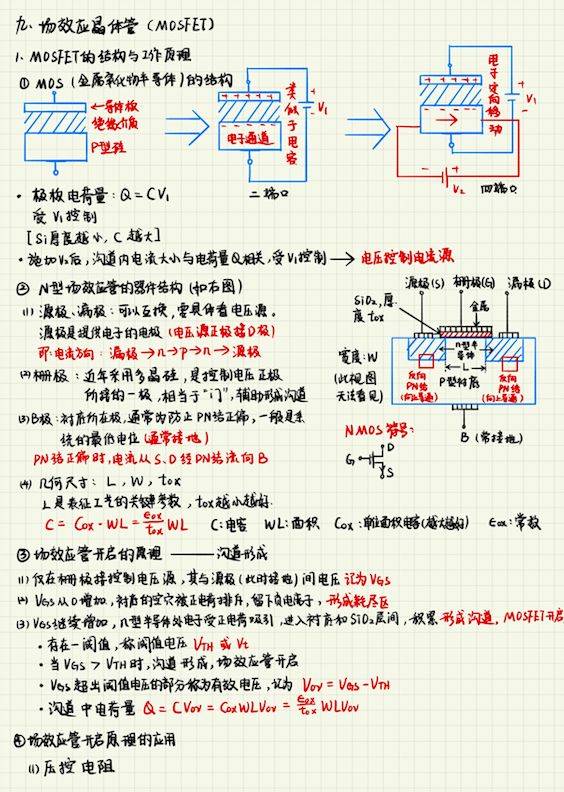 九. 场效应晶体管 (MOSFET)
1. MOSFET的结构与工作原理
① MOS (金属氧化物半导体) 的结构
←导体板
绝缘介质
P型硅
类似于电容
V₁
电子通道
二端口
电子定向移动
V₁
V₂
四端口
· 极板电荷量: Q = CV₁
受 V₁ 控制
[Si厚度越小, C 越大]
· 施加V₂后, 沟道内电流大小与电荷量Q相关, 受V₁控制 → 电压控制电流源
② N型场效应管的器件结构 (如右图)
(1) 源极、漏极: 可以互换, 需具体看电压源。
源极是提供电子的电极 (电压源正极接D极)
即: 电流方向: 漏极→n→p→n→源极
(2) 栅极: 近年采用多晶硅, 是控制电压正极
所接的一极, 相当于"门", 辅助形成沟道
(3) B极: 衬底所在极, 通常为防止PN结正偏, 一般是系
统的最低电位 (通常接地)
PN结正偏时, 电流从S、D经PN结流向B
源极(S) 栅极(G) 漏极(D)
SiO₂, 厚度tox
金属
n型半导体
L
宽度: W
(此视图无法看见)
P型衬底
反向PN结(向上导通)
反向PN结(向上导通)
B (常接地)
NMOS 符号:
G
D
S
(4) 几何尺寸: L, W, tox
L是表征工艺的关键参数, tox越小越好.
C = Cox·WL = εox/tox WL C: 电容 WL: 面积 Cox: 单位面积电容(越大越好) εox: 常数
③ 场效应管开启的原理 —— 沟道形成
(1) 仅在栅极接控制电压源, 其与源极 (此时接地) 间电压记为VGS
(2) VGS从0增加, 衬底的空穴被正电荷排斥, 留下负电离子, 形成耗尽区
(3) VGS继续增加, n型半导体处电子受正电荷吸引, 进入衬底和SiO₂层间, 积累形成沟道, MOSFET开启
· 存在一阈值, 称阈值电压 VTH 或 Vt
· 当 VGS > VTH 时, 沟道形成, 场效应管开启
· VGS超出阈值电压的部分称为有效电压, 记为 VOV = VGS − VTH
· 沟道中电荷量 Q = CVOV = CoxWLVOV = εox/tox WLVOV
④ 场效应管开启原理的应用
(1) 压控电阻